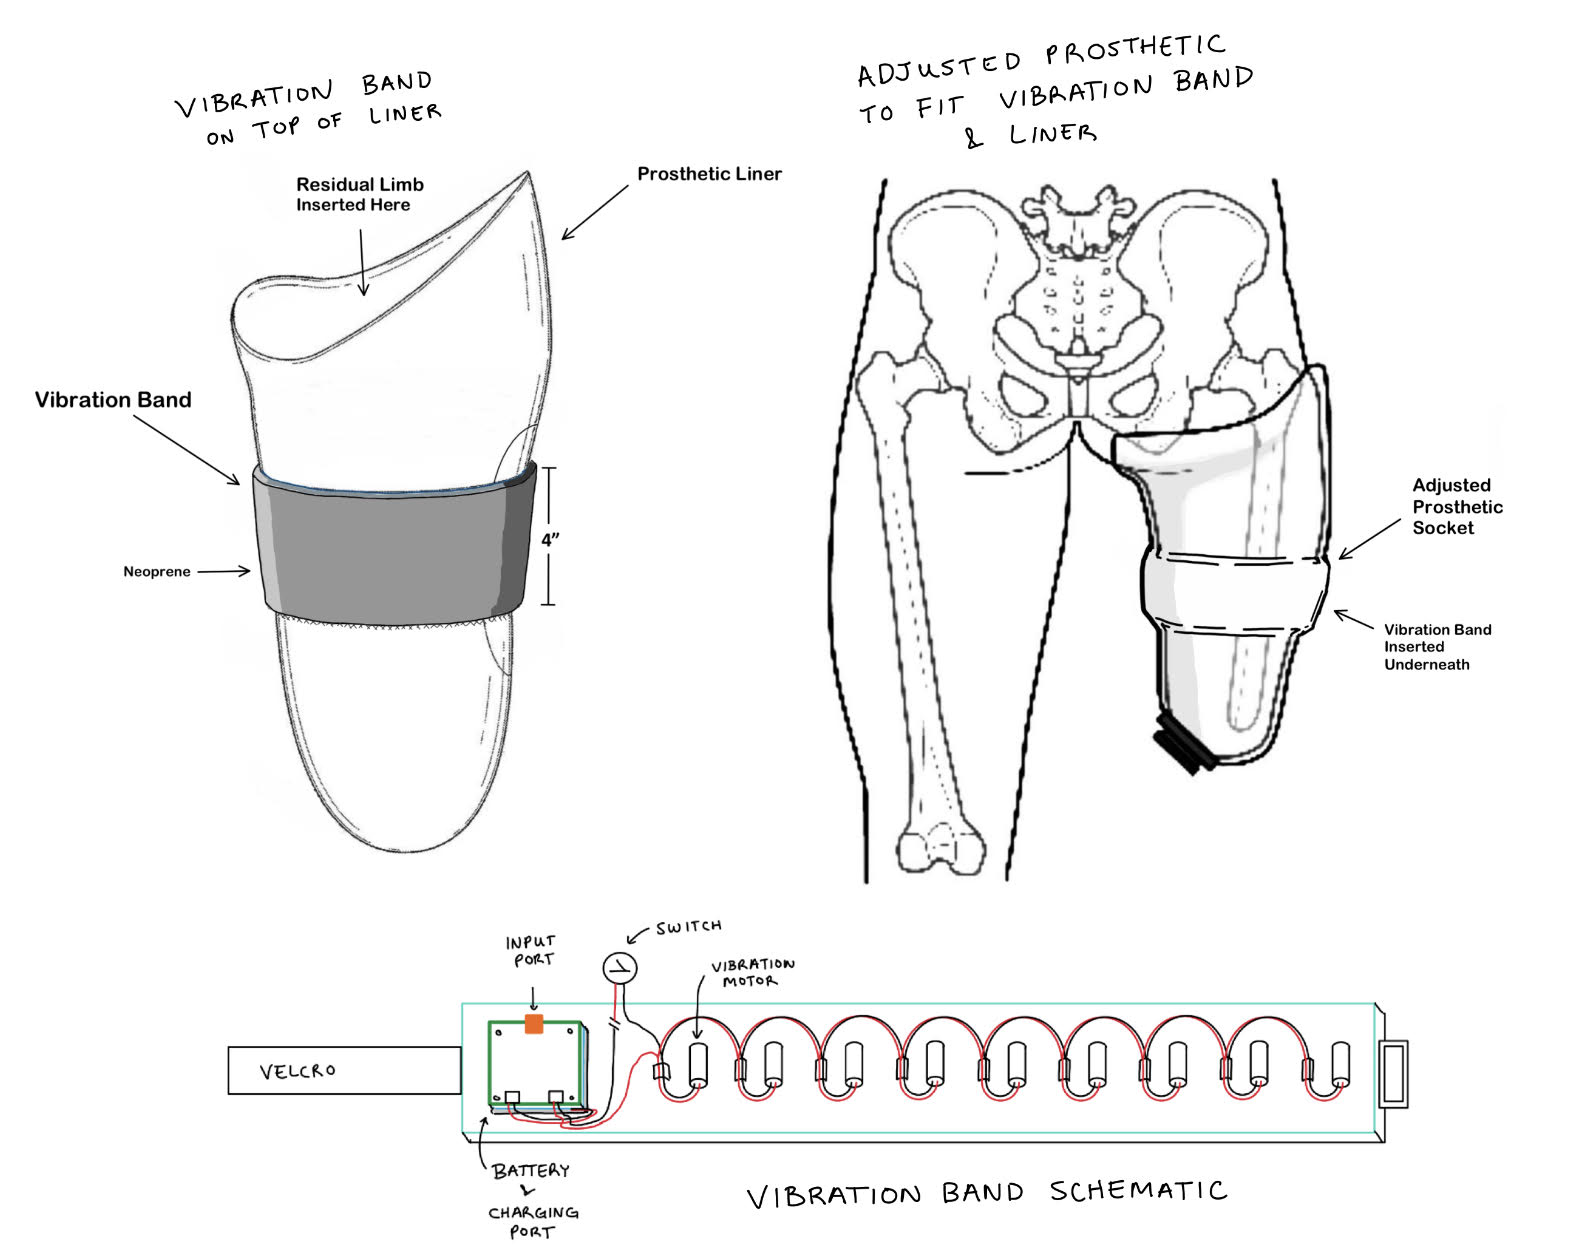 VIBRATION BAND
ON TOP OF LINER
Residual Limb
Inserted Here
Prosthetic Liner
Vibration Band
4”
Neoprene
ADJUSTED PROSTHETIC
TO FIT VIBRATION BAND
& LINER
Adjusted
Prosthetic
Socket
Vibration Band
Inserted
Underneath
INPUT
PORT
SWITCH
VIBRATION
MOTOR
VELCRO
BATTERY
&
CHARGING
PORT
VIBRATION BAND SCHEMATIC